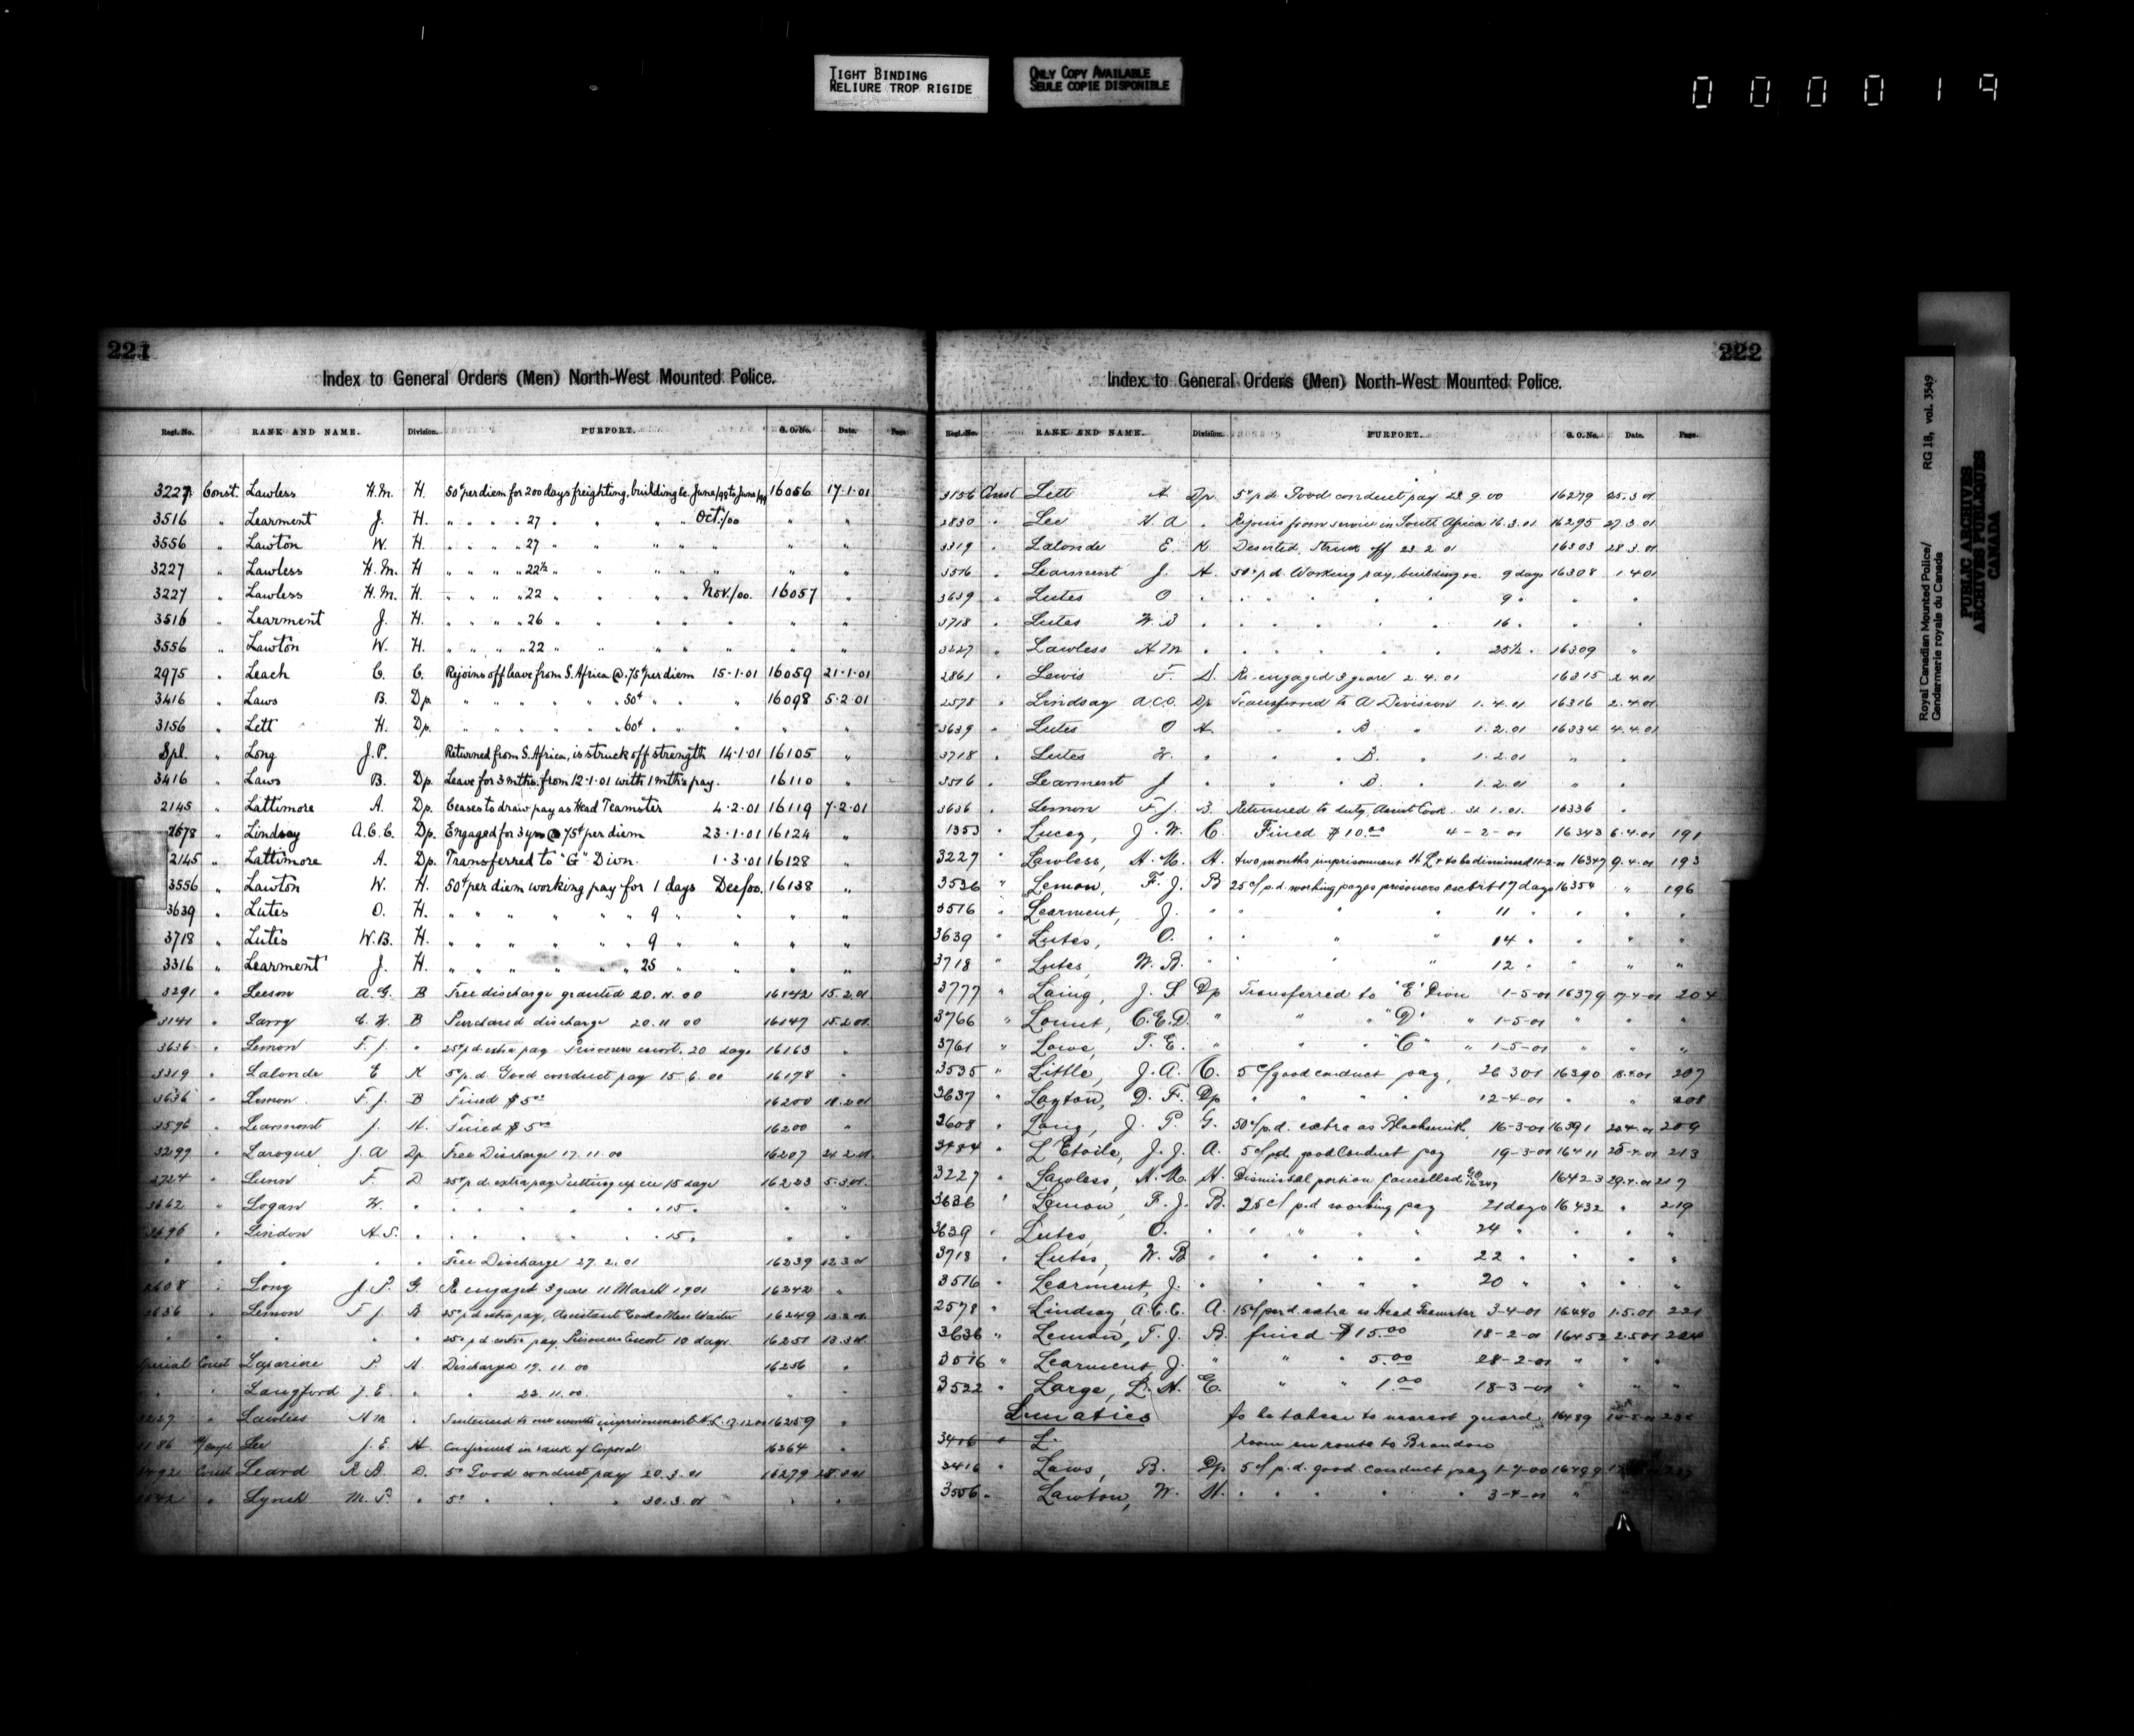 TIGHT BINDING
RELIURE TROP RIGIDE
ONLY COPY AVAILABLE
SEULE COPIE DISPONIBLE
000019
221
Index to General Orders (Men) North-West Mounted Police.
Regl. No. RANK AND NAME. Division. PURPORT. G. O. No. Date. Page.
3227 Const. Lawless H.M. H. 50¢ per diem for 200 days freighting, building &c. June/98 to June/99 16056 17.1.01
3516 " Learment J. H. " " " " 27 " " " " Oct:/00 " "
3556 " Lawton W. H. " " " " 27 " " " " " " "
3227 " Lawless H.M. H " " " " 22½ " " " " " " "
3227 " Lawless H.M. H. " " " " 22 " " " " Nov./00. 16057 "
3516 " Learment J. H. " " " " 26 " " " " " " "
3556 " Lawton W. H. " " " " 22 " " " " " " "
2975 " Leach C. C. Rejoins off leave from S. Africa @ .75¢ per diem 15.1.01 16059 21.1.01
3416 " Laws B. Dp. " " " " " 50¢ " " " 16098 5.2.01
3156 " Lett H. Dp. " " " " " 60¢ " " " " "
Spl. " Long J.P. Returned from S. Africa, is struck off strength 14.1.01 16105 "
3416 " Laws B. Dp. Leave for 3 mths. from 12.1.01 with 1 mth's pay. 16110 "
2145 " Lattimore A. Dp. Ceases to draw pay as Head Teamster 4.2.01 16119 7.2.01
2578 " Lindsay A.C.C. Dp. Engaged for 3 yrs @ 75¢ per diem 23.1.01 16124 "
2145 " Lattimore A. Dp. Transferred to "G" Dion. 1.3.01 16128 "
3556 " Lawton W. H. 50¢ per diem working pay for 1 days Dec/00. 16138 "
3639 " Lutes O. H. " " " " " " 9 " " " "
3718 " Lutes W.B. H. " " " " " " 9 " " " "
3316 " Learment J. H. " " " " " " 25 " " " "
3291 " Leeson A.G. B Free discharge granted 20.11.00 16142 15.2.01
3141 " Larry C.W. B Purchased discharge 20.11.00 16147 15.2.01
3636 " Lemon F.J. " 25¢ p.d. extra pay - Prisoners escort. 20 days 16163 "
3319 " Lalonde E K 5¢ p.d. Good conduct pay 15.6.00 16178 "
3636 " Lemon F.J. B Fined $5.00 16200
" Learmont J. H. Fined $5.00 16200 "
3299 " Laroque J.A Dp Free Discharge 17.11.00 16207 21.2.01
" Lunn F. D 25¢ p.d. extra pay Putting up ice 15 days 16223 5.3.01
3662 " Logan W. " " " " " 15 " " "
" Lindon H.S. " " " " " 15 " " "
" " " Free Discharge 27.2.01 16239 12.3.01
2608 " Long J.P. G. Re engaged 3 years 11 March 1901 16242 "
3636 " Lemon F J B 25¢ p.d extra pay, Assistant Cook & Mess Waiter 16249 13.3.01
" " " " 25¢ p.d. extra pay, Prisoners Escort 10 days. 16251 13.3.01
Special Const H. Discharged 19.11.00 16256 "
" " Langford J.E. " " 22.11.00. " "
3227 " Lawless H M " Sentenced to one months imprisonment H.L. 16259 "
Lee J.E. H. Confirmed in rank of Corporal 16264 "
Const Leard R.B. D. 5¢ Good conduct pay 20.3.01 16279
" Lynch M.P. " 5¢ " " " 30.3.01 " "
222
Index to General Orders (Men) North-West Mounted Police.
Regl. No. RANK AND NAME. Division. PURPORT. G. O. No. Date. Page.
3156 Const Lett H Dp. 5¢ p.d. Good conduct pay 28.9.00 16279 25.3.01
2830 " Lee H.A " Rejoins from service in South Africa 16.3.01 16295 27.3.01
3319 " Lalonde E. K Deserted, Struck off 23.2.01 16303 28.3.01
3516 " Learment J. H. 50¢ p.d. Working pay, building &c. 9 days 16308 1.4.01
3639 " Lutes O " " " " " 9 " " "
3718 " Lutes W.B " " " " " 16 " " "
3227 " Lawless H M " " " " " 25½ " 16309 "
2861 " Lewis F. D. Re-engaged 3 years 2.4.01 16315 2.4.01
2578 " Lindsay A.C.C. Dp Transferred to A Division 1.4.01 16316 2.4.01
3639 " Lutes O H " " B " 1.2.01 16334 4.4.01
3718 " Lutes W. " " " B. " 1.2.01 " "
3516 " Learment J " " " B. " 1.2.01 " "
3636 " Lemon F.J. B. Returned to duty, Assist Cook. 31.1.01. 16336 "
1353 " Lucey, J.W. C. Fined $10.00 4-2-01 16343 6.4.01 191
3227 " Lawless, H.M. H. two months imprisonment H.L. & to be dismissed 11-2-01 16347 9.4.01 193
3636 " Lemon, F.J. B 25c/ p.d. working pay as prisoners escort 17 days 16354 " 196
3516 " Learment, J. " " " " 11 " " " "
3639 " Lutes, O. " " " 14 " " " "
3718 " Lutes, W.B. " " " 12 " " " "
3777 " Laing, J.S Dp Transferred to "E" Dion 1-5-01 16379 17-4-01 204
3766 " Lount, C.E.D. " " " "D" " 1-5-01 " " "
3761 " Lowe, T.E. " " "C" " 1-5-01 " " "
3535 " Little, J.A. C. 5c/ good conduct pay, 26 3 01 16390 18.4.01 207
3637 " Layton, D.F. Dp " " " " 12-4-01 " " 208
2608 " Long, J.P. G. 50c/ p.d. extra as Blacksmith 16-3-01 16391 20.4.01 209
3484 " L'Etoile, J.J. A. 5c/ pd. good Conduct pay 19-3-01 16411 25-4-01 213
3227 " Lawless, H.M. H. Dismissal portion Cancelled G.O. 16347 16423 29.4.01 217
3636 " Lemon, F.J. B. 25c/ p.d working pay 21 days 16432 " 219
3639 " Lutes, O. " " " " 24 " " " "
3718 " Lutes, W.B " " " " 22 " " " "
3516 " Learment, J. " " " " 20 " " " "
2578 " Lindsay, A.C.C. A. 15c/ per d. extra as Head Teamster 3-4-01 16440 1.5.01 221
3636 " Lemon, F.J. B. fined $15.00 18-2-01 16452 2.5.01 224
3516 " Learment, J. " " " 5.00 28-2-01 " " "
3522 " Large, L.H. E. " " 1.00 18-3-01 " " "
Lunatics to be taken to nearest guard 16489
3416 " L. room en route to Brandon
3416 " Laws, B. Dp 5c/ p.d. good conduct pay 1-7-00 16499
3556 " Lawton, W. H. " " " " 3-4-01 "
Royal Canadian Mounted Police/ RG 18, vol. 3549
Gendarmerie royale du Canada
PUBLIC ARCHIVES
ARCHIVES PUBLIQUES
CANADA